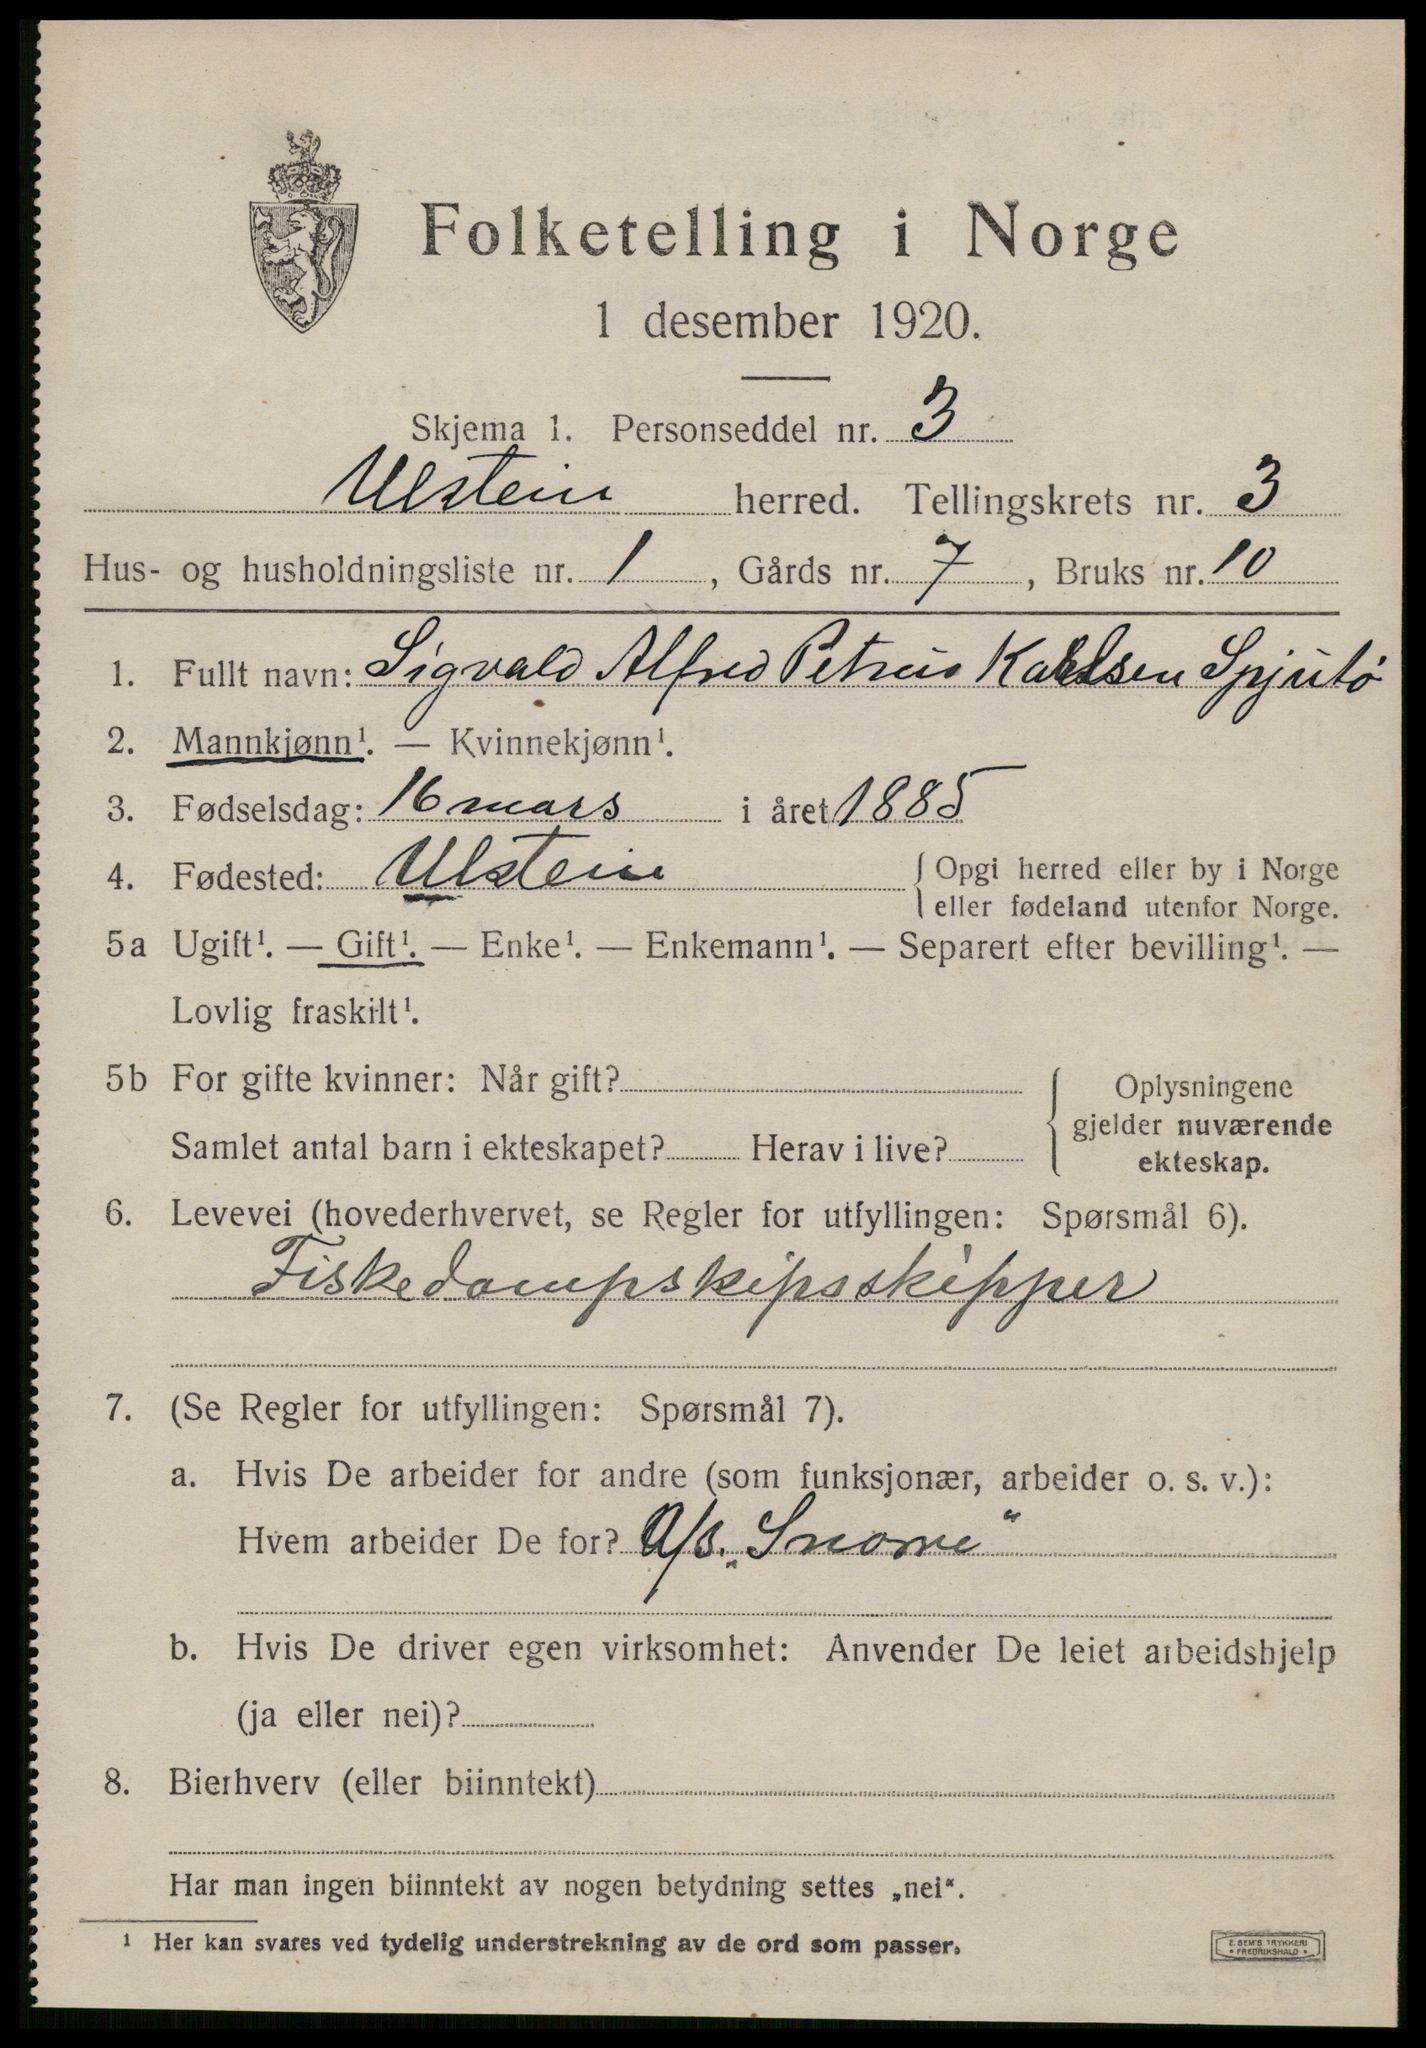 Folketelling i Norge
1 desember 1920.
Skjema 1. Personseddel nr. 3
Ulstein herred. Tellingskrets nr. 3
Hus- og husholdningsliste nr. 1, Gårds nr. 7, Bruks nr. 10
1. Fullt navn: Sigvald Alfred Petrus Karlsen Spjutø
2. Mannkjønn¹. — Kvinnekjønn¹.
3. Fødselsdag: 16 mars i året 1885
4. Fødested: Ulstein { Opgi herred eller by i Norge
eller fødeland utenfor Norge.
5a Ugift¹. — Gift¹. — Enke¹. — Enkemann¹. — Separert efter bevilling¹. —
Lovlig fraskilt¹.
5b For gifte kvinner: Når gift?
Samlet antal barn i ekteskapet? Herav i live?
{ Oplysningene
gjelder nuværende
ekteskap.
6. Levevei (hovederhvervet, se Regler for utfyllingen: Spørsmål 6).
Fiskedampskipsskipper
7. (Se Regler for utfyllingen: Spørsmål 7).
a. Hvis De arbeider for andre (som funksjonær, arbeider o. s. v.):
Hvem arbeider De for? A/S. „Snorre“
b. Hvis De driver egen virksomhet: Anvender De leiet arbeidshjelp
(ja eller nei)?
8. Bierhverv (eller biinntekt)
Har man ingen biinntekt av nogen betydning settes „nei“.
¹ Her kan svares ved tydelig understrekning av de ord som passer.
E. SEM'S TRYKKERI
• FREDRIKSHALD •